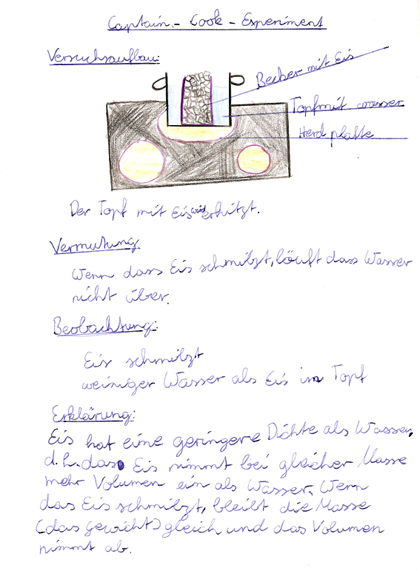 Captain - Cook - Experiment
Versuchsaufbau:
Becher mit Eis
Topf mit wasser
Herdplatte
Der Topf mit Eis wird erhitzt.
Vermutung
Wenn dass Eis schmilzt, läuft dass Wasser
nicht über.
Beobachtung:
Eis schmilzt
weiniger Wasser als Eis im Topf
Erklärung:
Eis hat eine geringere Dichte als Wasser,
d.h. das Eis nimmt bei gleicher Masse
mehr Volumen ein als Wasser. Wenn
das Eis schmilzt, bleibt die Masse
(das Gewicht) gleich und das Volumen
nimmt ab.